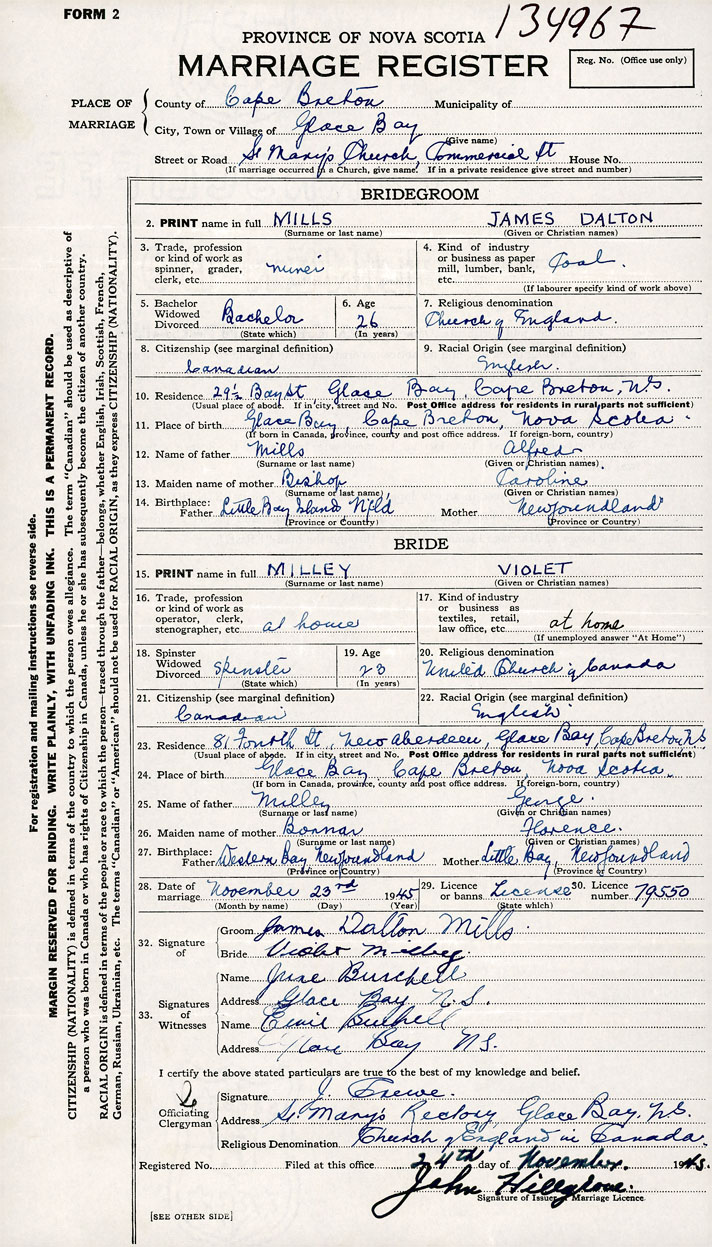 FORM 2
134967
PROVINCE OF NOVA SCOTIA
MARRIAGE REGISTER
Reg. No. (Office use only)
PLACE OF MARRIAGE
County of Cape Breton Municipality of
City, Town or Village of Glace Bay
(Give name)
Street or Road St Mary's Church, Commercial St House No.
(If marriage occurred in a Church, give name. If in a private residence give street and number)
BRIDEGROOM
2. PRINT name in full MILLS JAMES DALTON
(Surname or last name) (Given or Christian names)
3. Trade, profession or kind of work as spinner, grader, clerk, etc. miner
4. Kind of industry or business as paper mill, lumber, bank, etc. Coal
(If labourer specify kind of work above)
5. Bachelor Widowed Divorced Bachelor
(State which)
6. Age 26
(In years)
7. Religious denomination
Church of England.
8. Citizenship (see marginal definition)
Canadian
9. Racial Origin (see marginal definition)
English.
10. Residence 29½ Bay St, Glace Bay, Cape Breton, N.S.
(Usual place of abode. If in city, street and No. Post Office address for residents in rural parts not sufficient)
11. Place of birth Glace Bay, Cape Breton, Nova Scotia.
(If born in Canada, province, county and post office address. If foreign-born, country)
12. Name of father Mills Alfred
(Surname or last name) (Given or Christian names)
13. Maiden name of mother Bishop Caroline
(Surname or last name) (Given or Christian names)
14. Birthplace: Father Little Bay Islands Nfld Mother Newfoundland
(Province or Country) (Province or Country)
BRIDE
15. PRINT name in full MILLEY VIOLET
(Surname or last name) (Given or Christian names)
16. Trade, profession or kind of work as operator, clerk, stenographer, etc. at home
17. Kind of industry or business as textiles, retail, law office, etc. at home
(If unemployed answer "At Home")
18. Spinster Widowed Divorced Spinster
(State which)
19. Age 23
(In years)
20. Religious denomination
United Church of Canada
21. Citizenship (see marginal definition)
Canadian
22. Racial Origin (see marginal definition)
English
23. Residence 81 Fourth St, New Aberdeen, Glace Bay, Cape Breton, N.S
(Usual place of abode. If in city, street and No. Post Office address for residents in rural parts not sufficient)
24. Place of birth Glace Bay Cape Breton, Nova Scotia.
(If born in Canada, province, county and post office address. If foreign-born, country)
25. Name of father Milley George.
(Surname or last name) (Given or Christian names)
26. Maiden name of mother Bonnar Florence.
(Surname or last name) (Given or Christian names)
27. Birthplace: Father Western Bay Newfoundland Mother Little Bay, Newfoundland
(Province or Country) (Province or Country)
28. Date of marriage November 23rd 1945
(Month by name) (Day) (Year)
29. Licence or banns License
(State which)
30. Licence number 79550
32. Signature of
Groom James Dalton Mills
Bride Violet Milley
33. Signatures of Witnesses
Name June Burchell
Address Glace Bay N.S.
Name Burchell
Address Glace Bay NS.
I certify the above stated particulars are true to the best of my knowledge and belief.
Officiating Clergyman
Signature J. Frewe.
Address St. Mary's Rectory, Glace Bay. N.S.
Religious Denomination Church of England in Canada.
Registered No. Filed at this office 24th day of November. 1945.
John Hillgrove.
Signature of Issuer of Marriage Licence.
[SEE OTHER SIDE]
For registration and mailing instructions see reverse side.
MARGIN RESERVED FOR BINDING. WRITE PLAINLY, WITH UNFADING INK. THIS IS A PERMANENT RECORD.
CITIZENSHIP (NATIONALITY) is defined in terms of the country to which the person owes allegiance. The term "Canadian" should be used as descriptive of
a person who was born in Canada or who has rights of Citizenship in Canada, unless he or she has subsequently become the citizen of another country.
RACIAL ORIGIN is defined in terms of the people or race to which the person—traced through the father—belongs, whether English, Irish, Scottish, French,
German, Russian, Ukrainian, etc. The terms "Canadian" or "American" should not be used for RACIAL ORIGIN, as they express CITIZENSHIP (NATIONALITY).